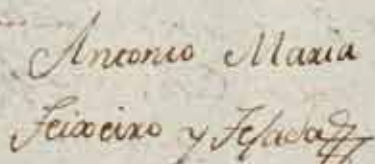 Antonio Maria
Feixeiro y Tejada